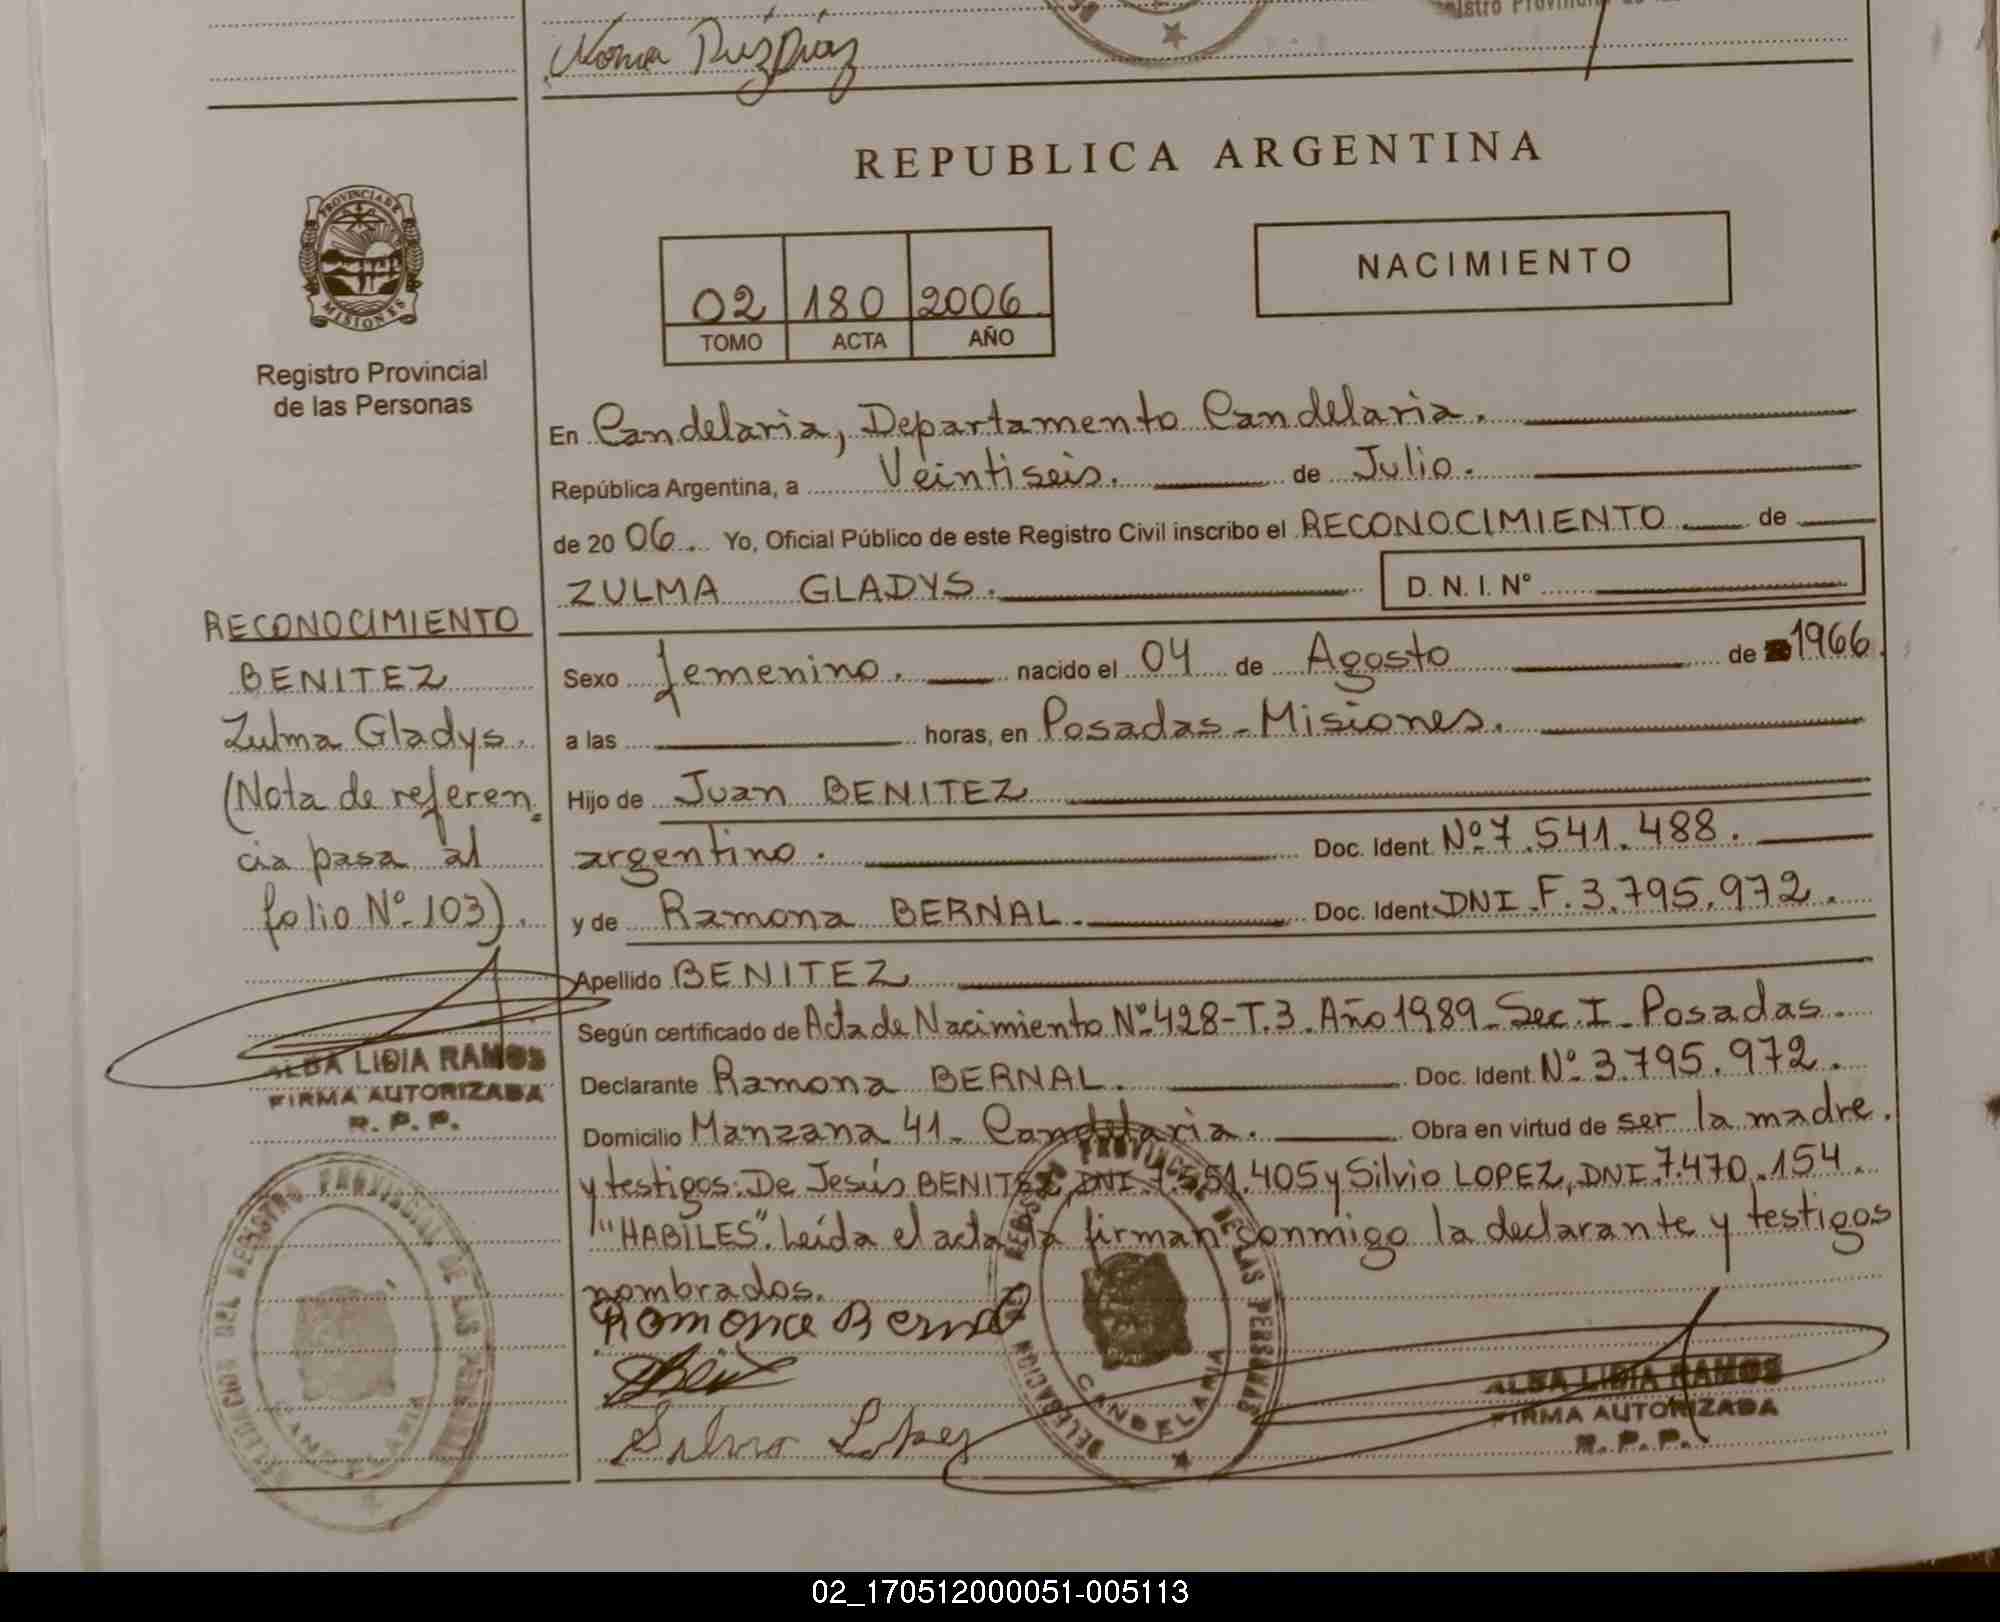 Norma Ruiz Diaz
REPUBLICA ARGENTINA
PROVINCIA DE
MISIONES
Registro Provincial
de las Personas
02 180 2006
TOMO ACTA AÑO
NACIMIENTO
En Candelaria, Departamento Candelaria.
República Argentina, a Veintiseis. de Julio.
de 20 06. Yo, Oficial Público de este Registro Civil inscribo el RECONOCIMIENTO de
ZULMA GLADYS. D. N. I. Nº
Sexo femenino. nacido el 04 de Agosto de 1966.
a las horas, en Posadas - Misiones.
Hijo de Juan BENITEZ
argentino. Doc. Ident. Nº 7.541.488.
y de Ramona BERNAL. Doc. Ident. DNI. F. 3.795.972.
Apellido BENITEZ
Según certificado de Acta de Nacimiento Nº 428-T.3. Año 1989. Sec. I - Posadas.
Declarante Ramona BERNAL. Doc. Ident. Nº 3.795.972.
Domicilio Manzana 41 - Candelaria. Obra en virtud de ser la madre.
y testigos: De Jesús BENITEZ, DNI. 7.551.405 y Silvio LOPEZ, DNI. 7.470.154.
"HABILES". Leída el acta la firman conmigo la declarante y testigos
nombrados.
Ramona Bernal
Silvio Lopez
ALBA LIDIA RAMOS
FIRMA AUTORIZADA
R. P. P.
DELEGACION DEL REGISTRO PROVINCIAL DE LAS PERSONAS
CANDELARIA
RECONOCIMIENTO
BENITEZ
Zulma Gladys.
(Nota de referen
cia pasa al
folio Nº 103).
ALBA LIDIA RAMOS
FIRMA AUTORIZADA
R. P. P.
DELEGACION DEL REGISTRO PROVINCIAL DE LAS PERSONAS
CANDELARIA
02_170512000051-005113